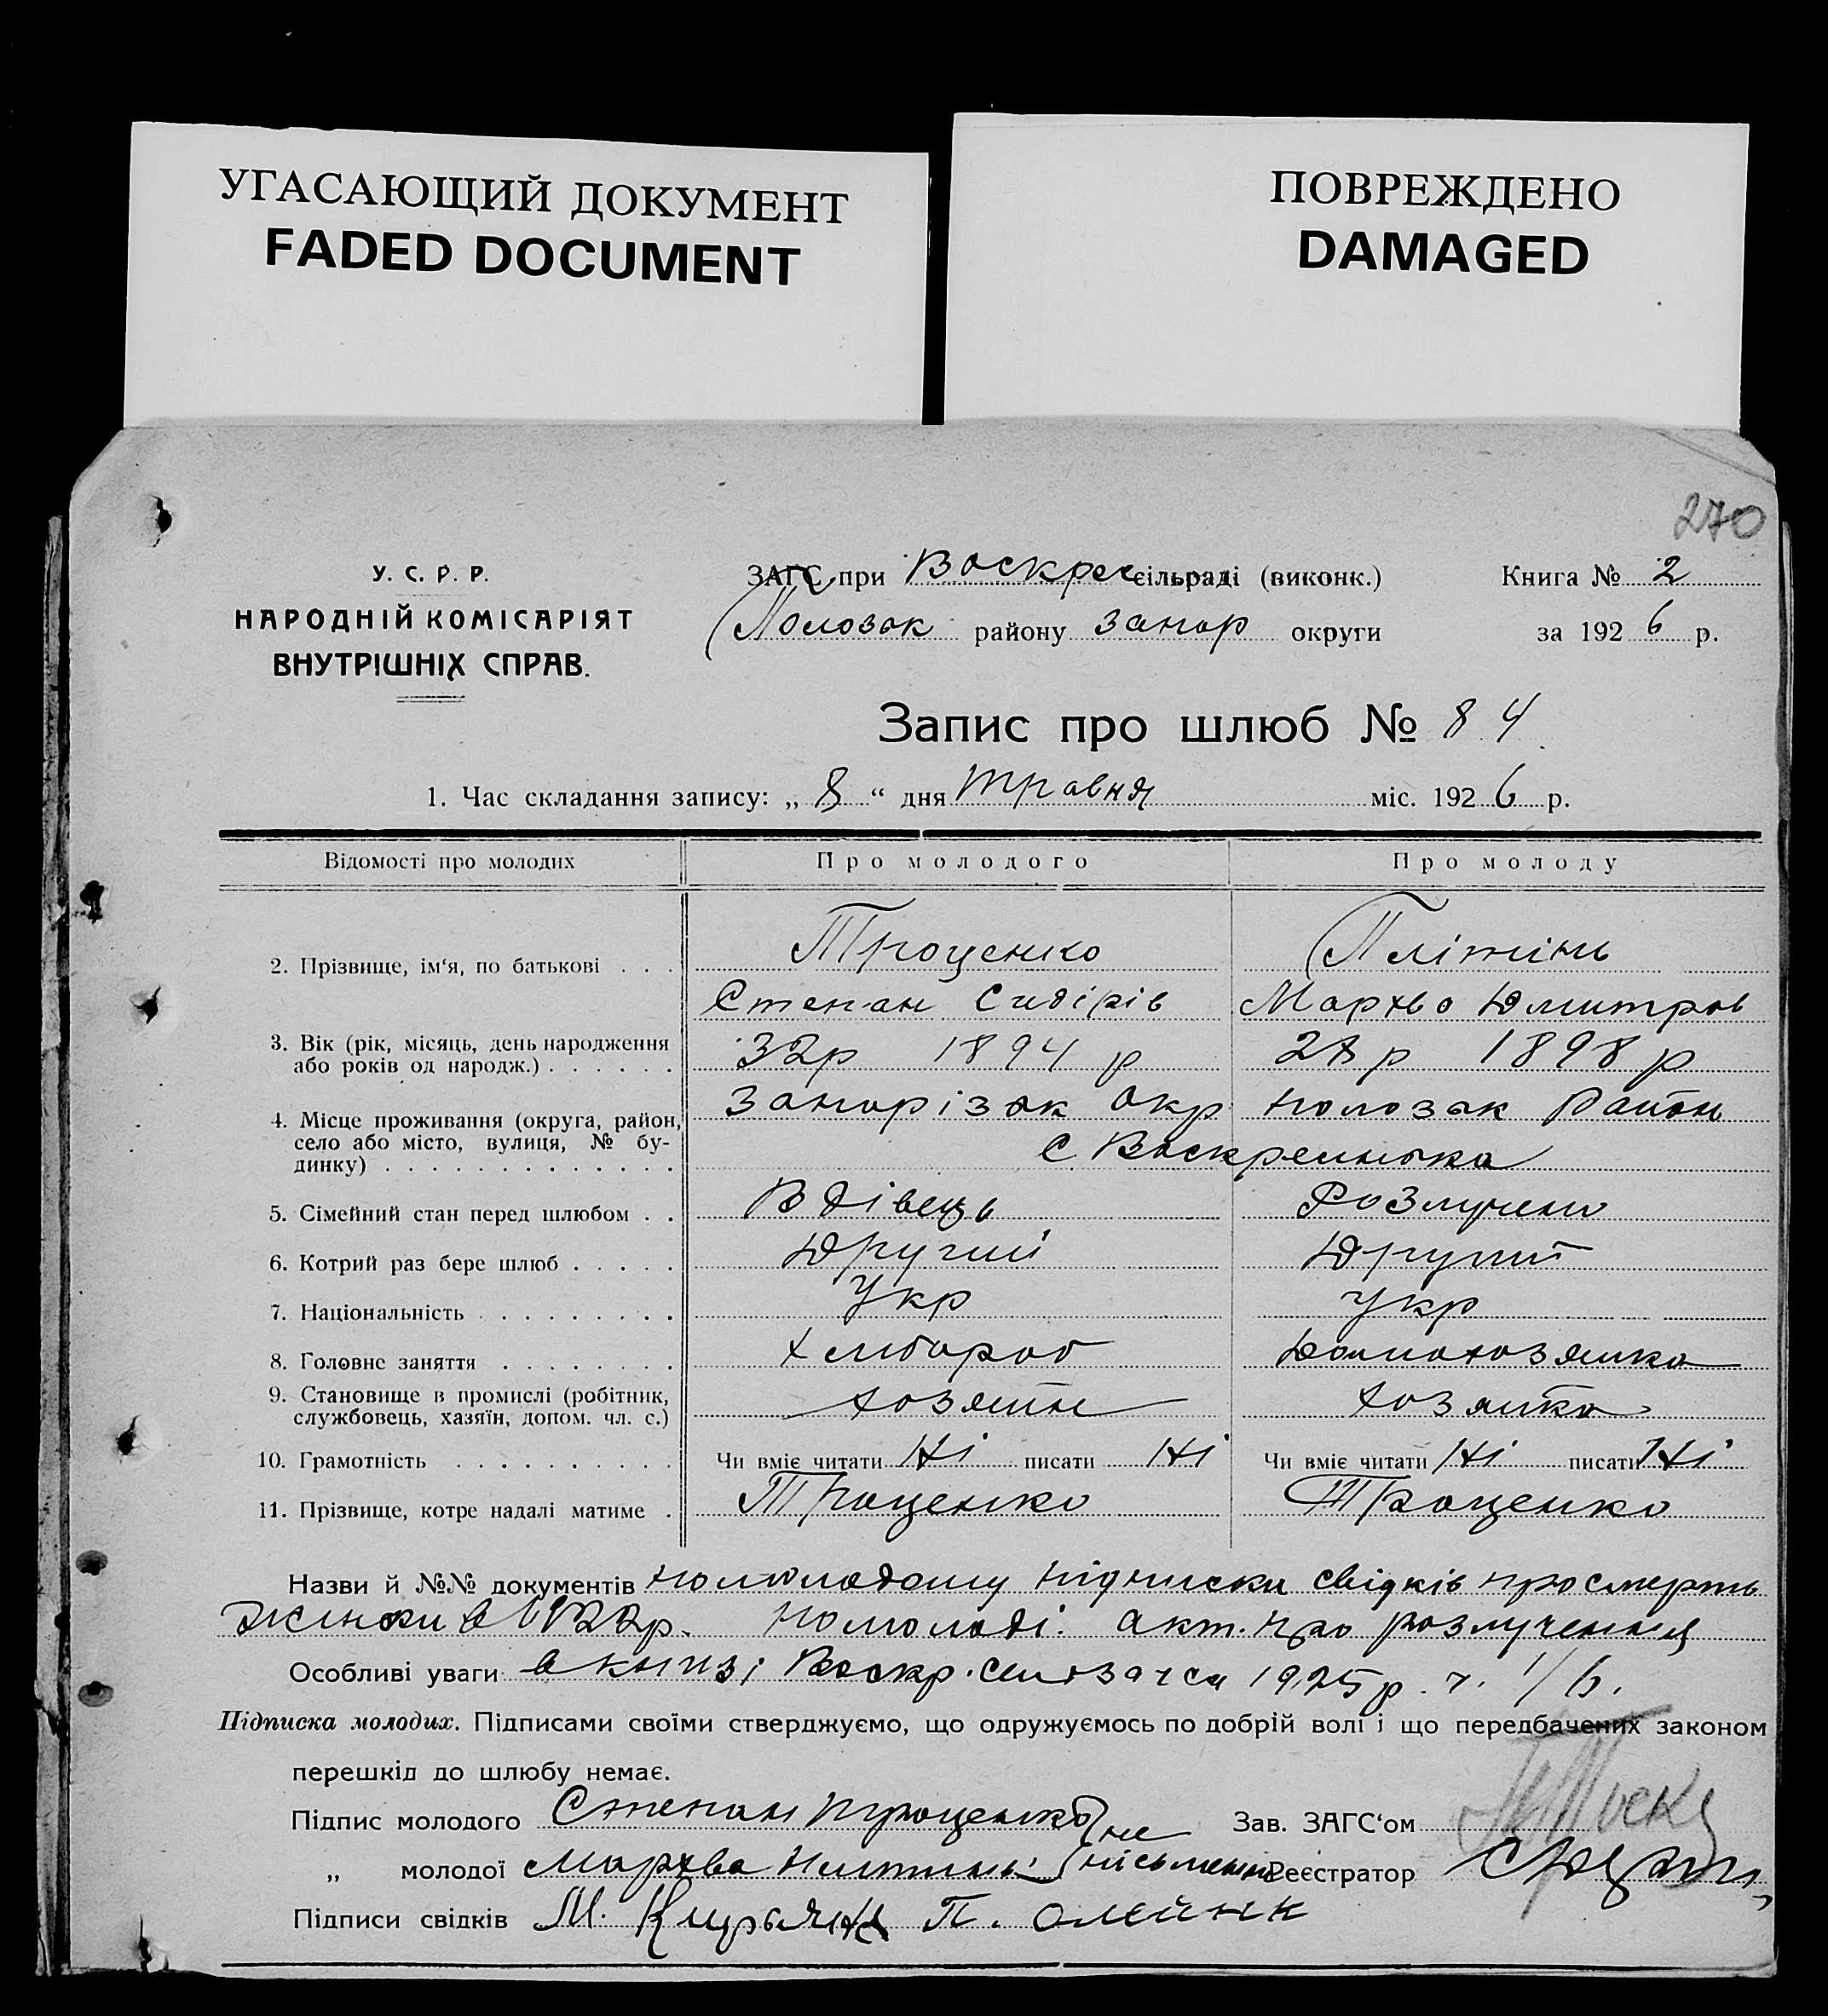 УГАСАЮЩИЙ ДОКУМЕНТ
FADED DOCUMENT
ПОВРЕЖДЕНО
DAMAGED
270
У. С. Р. Р.
НАРОДНІЙ КОМІСАРІЯТ
ВНУТРІШНІХ СПРАВ.
ЗАГС при Воскрес сільраді (виконк.)
Книга № 2
Полозьк району Запор округи
за 1926 р.
Запис про шлюб № 84
1. Час складання запису: „8“ дня травня міс. 1926 р.
Відомості про молодих Про молодого Про молоду
2. Прізвище, ім‘я, по батькові . . . Троценко Плітінь
Степан Сидірів Мархва Дмитров
3. Вік (рік, місяць, день народження
або років од народж.) . . . . . . 32р 1894 р 28 р 1898 р
4. Місце проживання (округа, район,
село або місто, вулиця, № бу-
динку) . . . . . . . . . . . . . Запорізьк Окр полозьк Район
с Воскресенька
5. Сімейний стан перед шлюбом . . Вдівець Розлучено
6. Котрий раз бере шлюб . . . . . Другий Другий
7. Національність . . . . . . . . . Укр Укр
8. Головне заняття . . . . . . . . Хлибороб Домохозяйка
9. Становище в промислі (робітник,
службовець, хазяїн, допом. чл. с.) хозяїн хозяйка
10. Грамотність . . . . . . . . . . Чи вміє читати Ні писати Ні Чи вміє читати Ні писати Ні
11. Прізвище, котре надалі матиме . Троценко Троценко
Назви й №№ документів помолодому підписки свідків про смерть
жінки в 1922р. помолоді. акт. про розлучення
Особливі уваги в книзі Воскр. 1925 р. ч. 1/6.
Підписка молодих. Підписами своїми стверджуємо, що одружуємось по добрій волі і що передбачених законом
перешкід до шлюбу немає.
Підпис молодого Степан Троценко не
Зав. ЗАГС‘ом
„ молодої Мархва Плитинь письменні
Реєстратор
Підписи свідків М. П. Олейник